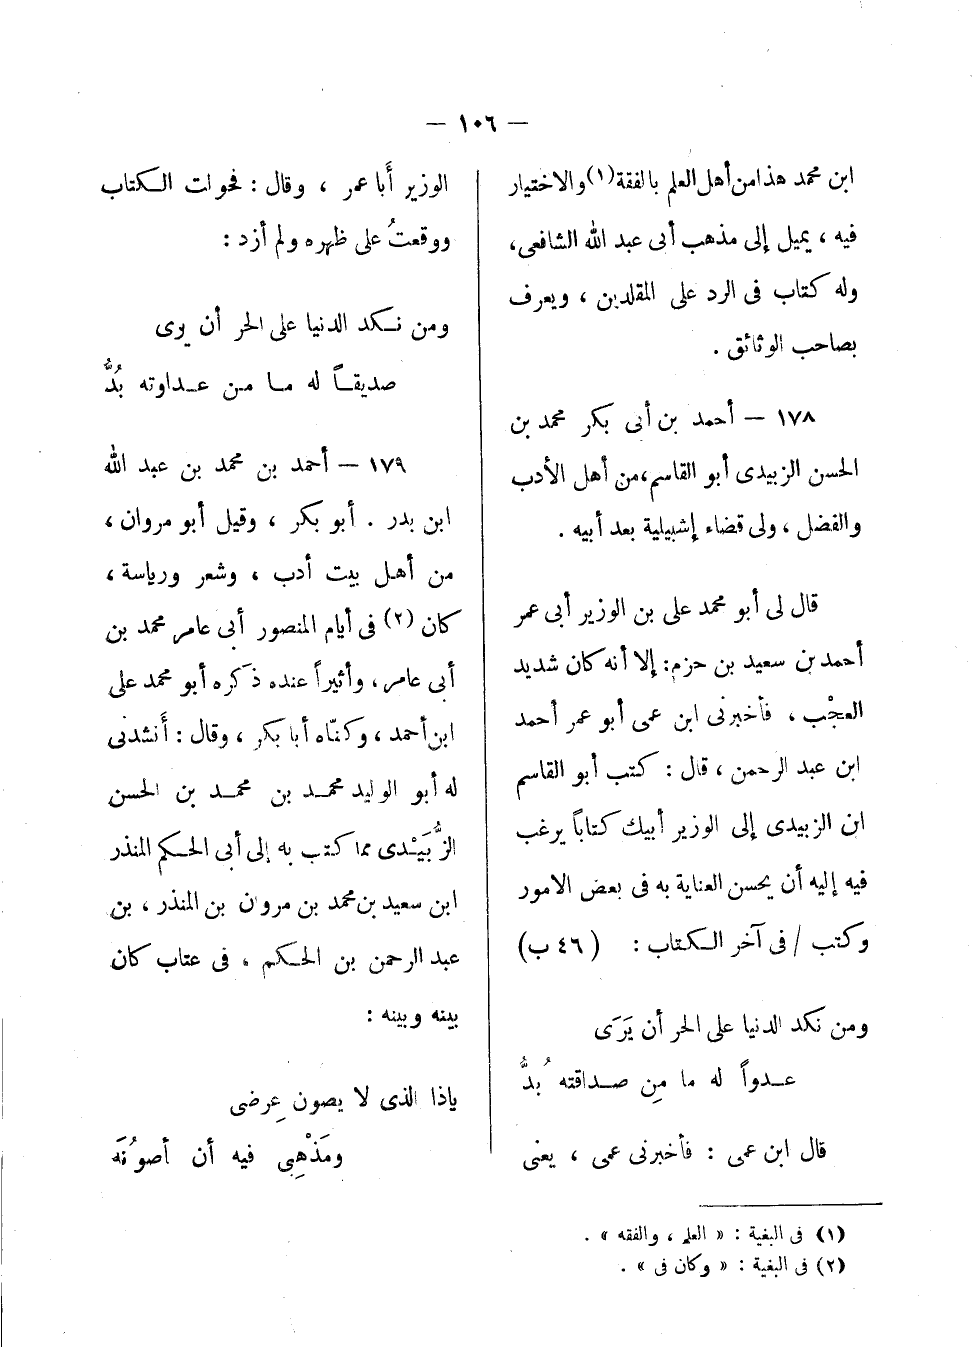 — ١٠٦ —
ابن محمد هذا من أهل العلم بالفقة(١) والاختيار
فيه ، يميل إلى مذهب أبى عبد الله الشافعى،
وله كتاب فى الرد على المقلدين ، ويعرف
بصاحب الوثائق .
١٧٨ — أحمد بن أبى بكر محمد بن
الحسن الزبيدى أبو القاسم،من أهل الأدب
والفضل ، ولى قضاء إشبيلية بعد أبيه .
قال لى أبو محمد على بن الوزير أبى عمر
أحمد بن سعيد بن حزم: إلا أنه كان شديد
العجْب ، فأخبرنى ابن عمى أبو عمر أحمد
ابن عبد الرحمن ، قال : كتب أبو القاسم
ابن الزبيدى إلى الوزير أبيك كتاباً يرغب
فيه إليه أن يحسن العناية به فى بعض الامور
وكتب / فى آخر الكتاب : ( ٤٦ ب)
ومن نكد الدنيا على الحر أن يَرَى
عدواً له ما مِن صداقته بُدُّ
قال ابن عمى : فأخبرنى عمى ، يعنى
الوزير أَبا عمر ، وقال : فحوات الكتاب
ووقعتُ على ظهره ولم أزد :
ومن نكد الدنيا على الحر أن يرى
صديقاً له ما من عداوته بُدُّ
١٧٩ — أحمد بن محمد بن عبد الله
ابن بدر . أبو بكر ، وقيل أبو مروان ،
من أهل بيت أدب ، وشعر ورياسة ،
كان (٢) فى أيام المنصور أبى عامر محمد بن
أبى عامر ، وأثيراً عنده ذكره أبو محمد على
ابن أحمد ، وكنّاه أبا بكر ، وقال : أَنشدنى
له أبو الوليد محمد بن محمد بن الحسن
الزُّبَيْدى مما كتب به إلى أبى الحكم المنذر
ابن سعيد بن محمد بن مروان بن المنذر ، بن
عبد الرحمن بن الحكم ، فى عتاب كان
بينه وبينه :
ياذا الذى لا يصون عِرضى
ومَذْهِبى فيه أن أصوُنَه
(١) فى البغية : « العلم ، والفقه » .
(٢) فى البغية : « وكان فى » .